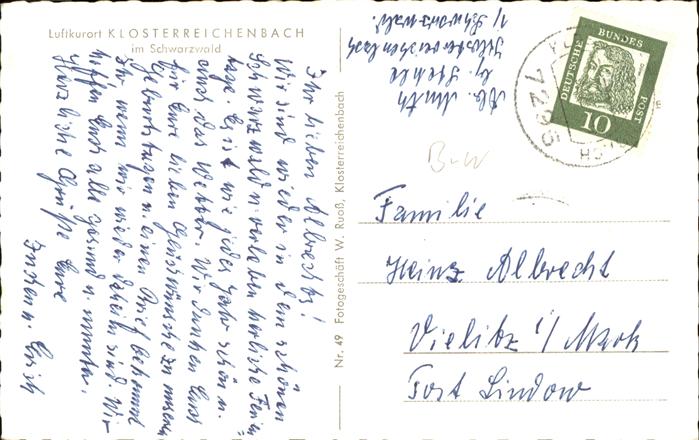 Luftkurort KLOSTERREICHENBACH
im Schwarzwald
Ihr lieben Albrechts!
Wir sind wieder in dem schönen
Schwarzwald u. verleben herrliche Ferien-
tage. Es ist wie jedes Jahr schön u.
auch das Wetter. Wir danken Euch
für Eure lieben Glückwünsche zu unseren
Geburtstagen u. einen Brief bekommt
Ihr wenn wir wieder daheim sind. Wir
hoffen Euch alle gesund u. munter.
Herzliche Grüße Eure
u. Erich
Nr. 49 Fotogeschäft W. Ruoß, Klosterreichenbach
Abs. Muth
b. Stehle
Klosterreichenbach
i/ Schwarzwald.
DEUTSCHE BUNDESPOST
10
7295
B-W
Familie
Heinz Albrecht
Vielitz i/ Mark
Post Lindow